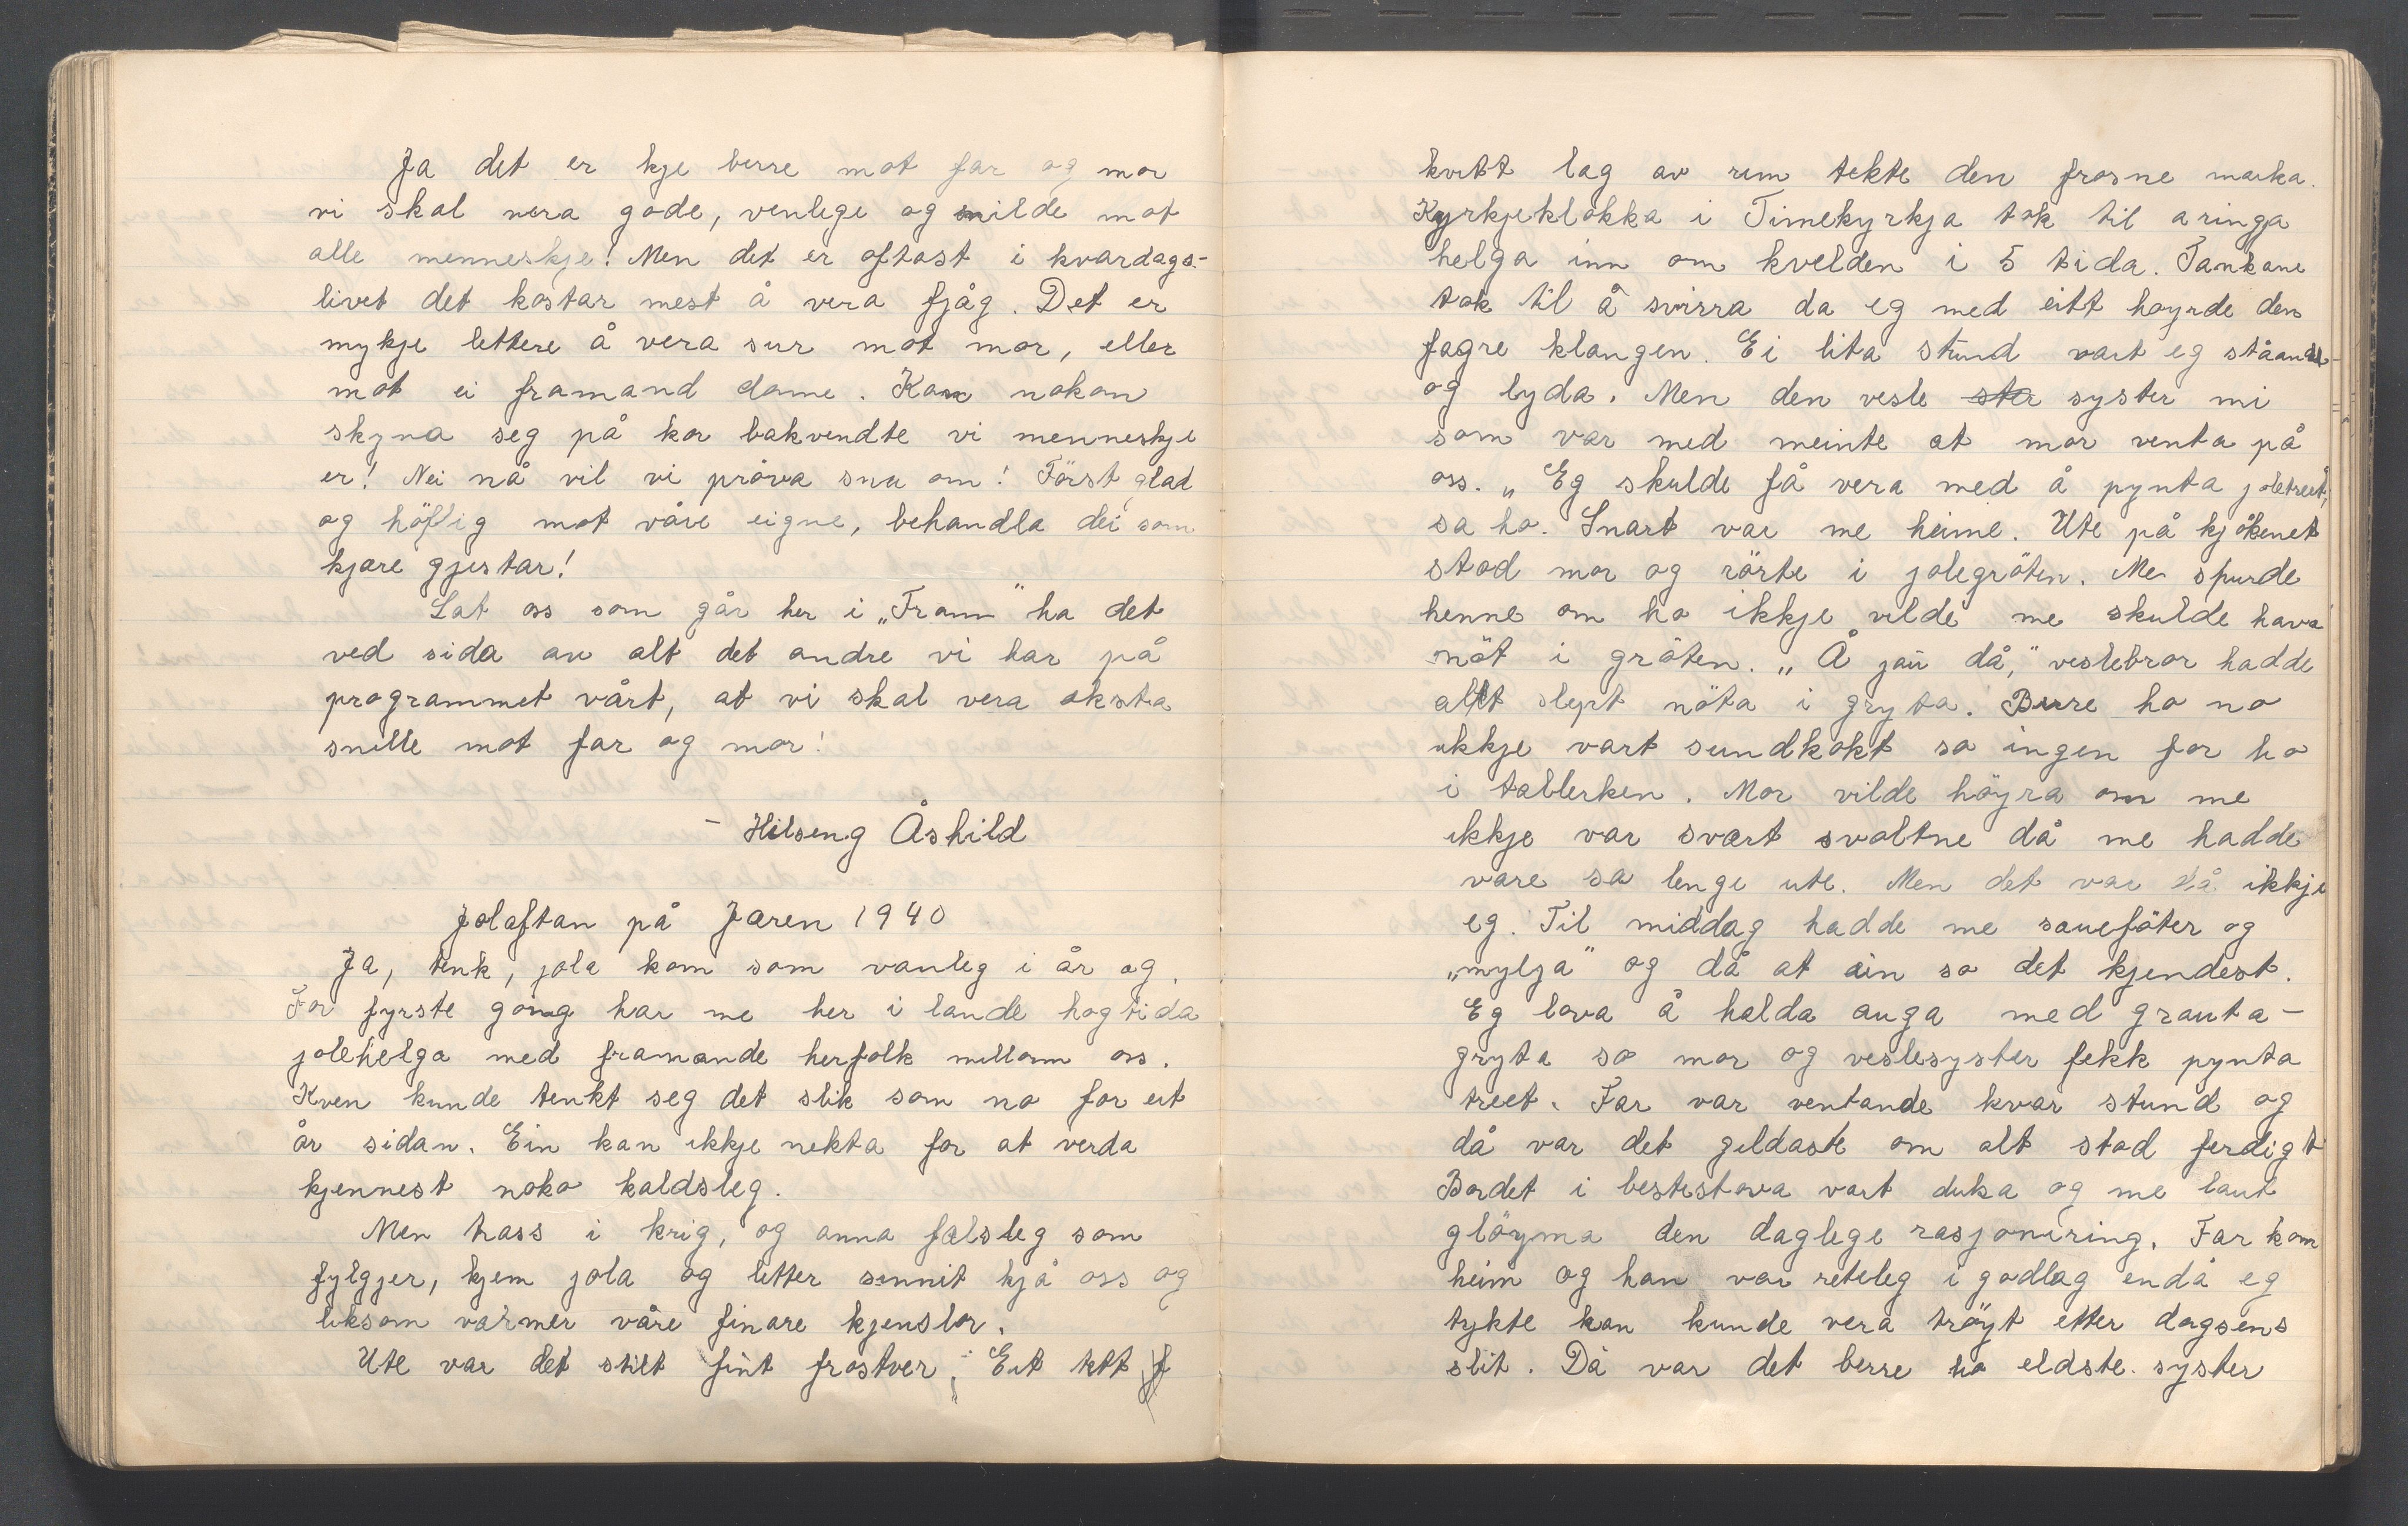 Ja det er kje berre mot far og mor
vi skal vera gode, venlege og milde mot
alle menneskje! Men det er oftast i kvardags-
livet det kostar mest å vera fjåg. Det er
mykje lettere å vera sur mot mor, eller
mot ei framand dame. Kan nokon
skyna seg på kor bakvendte vi menneskje
er! Nei nå vil vi pröva snu om! Först glad
og höflig mot våre eigne, behandla dei som
kjære gjestar!
Lat oss som går her i „Fram" ha det
ved sida av alt det andre vi har på
programmet vårt, at vi skal vera eksta
snille mot far og mor!
- Hilseng Åshild
Jolaftan på Jæren 1940
Ja, tenk, jola kom som vanleg i år og.
For fyrste gong har me her i lande høgtida
jolehelga med framande herfolk millom oss.
Kven kunde tenkt seg det slik som no for eit
år sidan. Ein kan ikkje nekta for at verda
kjennest noko kaldsleg.
Men trass i krig, og anna fælsleg som
fylgjer, kjem jola og letter sinnit hjå oss og
liksom varmer våre finare kjenslor.
Ute var det stilt fint frostver. Eit tett
kvitt lag av rim tekte den frosne marka.
Kyrkjeklokka i Timekyrkja tok til a ringja
helga inn om kvelden i 5 tida. Tankane
tok til å svirra da eg med eitt høyrde den
fagre klangen. Ei lita stund vart eg ståande
og lyda. Men den vesle ster syster mi
som var med meinte at mor venta på
oss. „Eg skulde få vera med å pynta joletreet,"
sa ho. Snart var me heime. Ute på kjökenet
stod mor og rörte i jolegröten. Me spurde
henne om ho ikkje vilde me skulde hava
nöt i gröten. „Å jau då," veslebror hadde
alt slept nöta i gryta. Berre ho no
ikkje vart sundkokt so ingen for ho
i tallerken. Mor vilde höyra om me
ikkje var svært svoltne då me hadde
vare sa lenge ute. Men det var då ikkje
eg. Til middag hadde me saueföter og
„mylja" og då åt ein so det kjendest.
Eg lova å halda auga med grauta-
gryta so mor og veslesyster fekk pynta
treet. Far var ventande kvar stund og
då var det gildaste om alt stod ferdigt
Bordet i bestestova vart duka og me laut
glöyma den daglege rasjonering. Far kom
heim og han var reteleg i godlag endå eg
tykte han kunde vera tröyt etter dagsens
slit. Då var det berre ho eldste syster